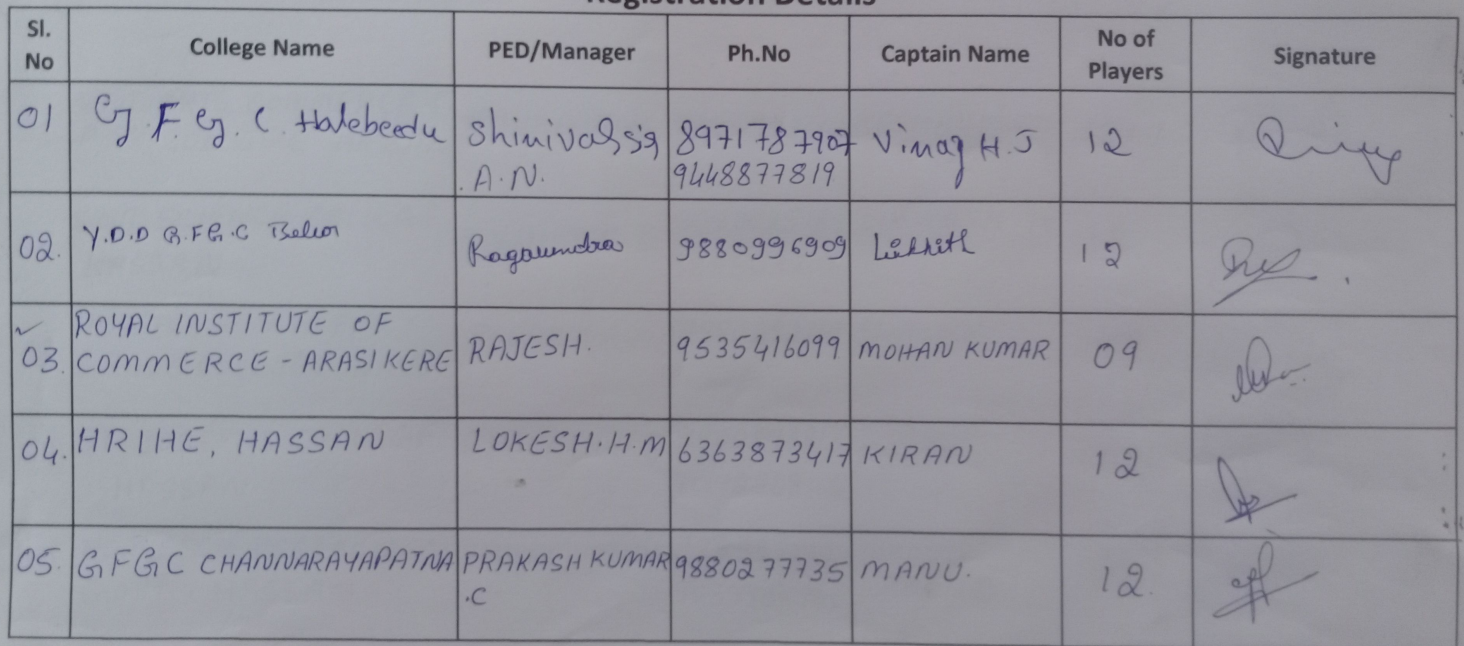 Registration Details
Sl. No College Name PED/Manager Ph.No Captain Name No of Players Signature
01 G.F.G.C. Halebeedu 8971787907 Vinay H.J 12
A.N. 9448877819
02. Y.D.D G.FG.C Belur 9880996909 Likhith 12
03. ROYAL INSTITUTE OF
COMMERCE - ARASIKERE RAJESH. 9535416099 MOHAN KUMAR 09
04. HRIHE, HASSAN LOKESH.H.M 6363873417 KIRAN 12
05. GFGC CHANNARAYAPATNA PRAKASH KUMAR 9880277735 MANU. 12.
.C